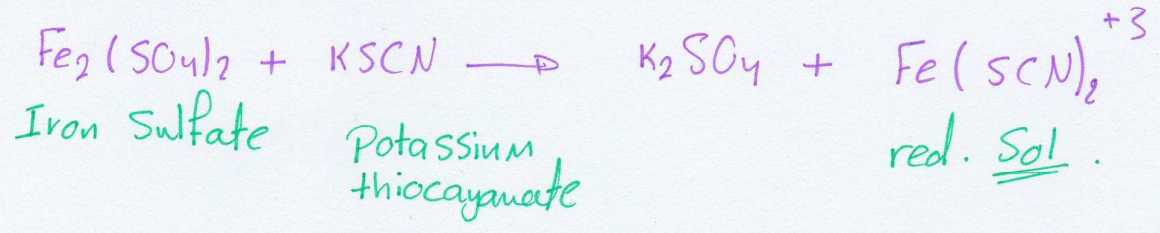 Fe₂(SO₄)₂ + KSCN → K₂SO₄ + Fe(SCN)₂⁺³
Iron Sulfate Potassium red. Sol.
thiocayanate